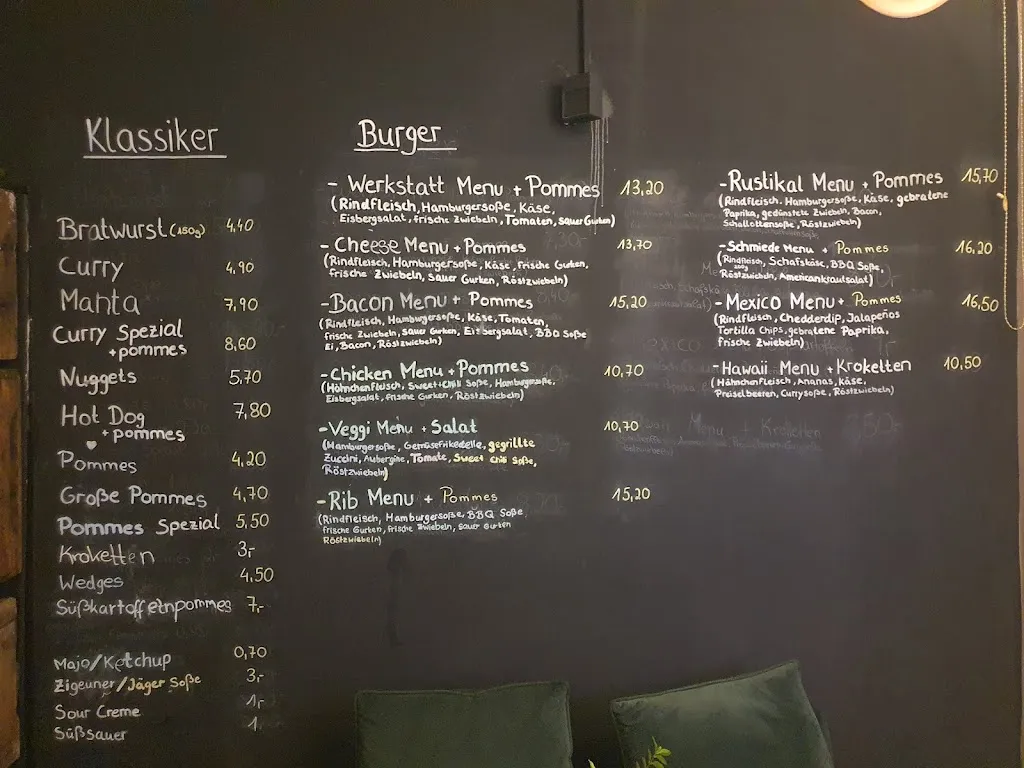 Klassiker
Bratwurst (150g) 4,40
Curry 4,90
Manta 7,90
Curry Spezial
+pommes 8,60
Nuggets 5,70
Hot Dog 7,80
+pommes
Pommes 4,20
Große Pommes 4,70
Pommes Spezial 5,50
Kroketten 3,-
Wedges 4,50
Süßkartoffelnpommes 7,-
Majo/Ketchup 0,70
Zigeuner/Jäger Soße 3,-
Sour Creme 1,-
Süßsauer 1
Burger
- Werkstatt Menu + Pommes 13,20
(Rindfleisch, Hamburgersoße, Käse,
Eisbergsalat, frische Zwiebeln, Tomaten, saure Gurken)
- Cheese Menu + Pommes 13,70
(Rindfleisch, Hamburgersoße, Käse, frische Gurken,
frische Zwiebeln, Saure Gurken, Röstzwiebeln)
-Bacon Menu + Pommes 15,20
(Rindfleisch, Hamburgersoße, Käse, Tomaten,
frische Zwiebeln, Saure Gurken, Eisbergsalat, BBQ Soße
Ei, Bacon, Röstzwiebeln)
-Chicken Menu + Pommes 10,70
(Hähnchenfleisch, Sweet-Chili Soße, Hamburgersoße,
Eisbergsalat, frische Gurken, Röstzwiebeln)
-Veggi Menu + Salat 10,70
(Hamburgersoße, Gemüsefrikedelle, gegrillte
Zuccini, Aubergine, Tomate, Sweet Chili Soße,
Röstzwiebeln)
-Rib Menu + Pommes 15,20
(Rindfleisch, Hamburgersoße, BBQ Soße
frische Gurken, frische Zwiebeln, Saure Gurken
Röstzwiebeln)
-Rustikal Menu + Pommes 15,70
(Rindfleisch, Hamburgersoße, Käse, gebratene
Paprika, gedünstete Zwiebeln, Bacon,
Schalottensoße, Röstzwiebeln)
-Schmiede Menu + Pommes 16,20
(Rindfleisch, Schafskäse, BBQ Soße,
200g
Röstzwiebeln, Americankrautsalat)
-Mexico Menu + Pommes 16,50
(Rindfleisch, Chedderdip, Jalapeños
Tortilla Chips, gebratene Paprika,
frische Zwiebeln)
-Hawaii Menu + Krokelten 10,50
(Hähnchenfleisch, Ananas, Käse,
Preiselbeeren, Currysoße, Röstzwiebeln)